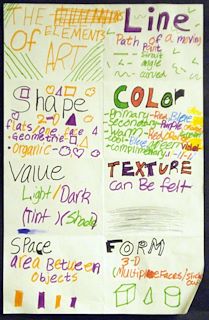 THE
ELEMENTS
OF ART
Line
Path of a moving
Point
circuit
angle
curved
Shape
2-D
flat
Geometric
Organic
COLOR
Primary-Red Blue
Secondary-Purple
Warm-Red
Cool-Blue green violet
complimentary
Value
Light/Dark
(Tint)(Shade)
TEXTURE
can Be felt
SPACE
area Between
objects
FORM
3-D
(Multiple Faces/sticks
out)